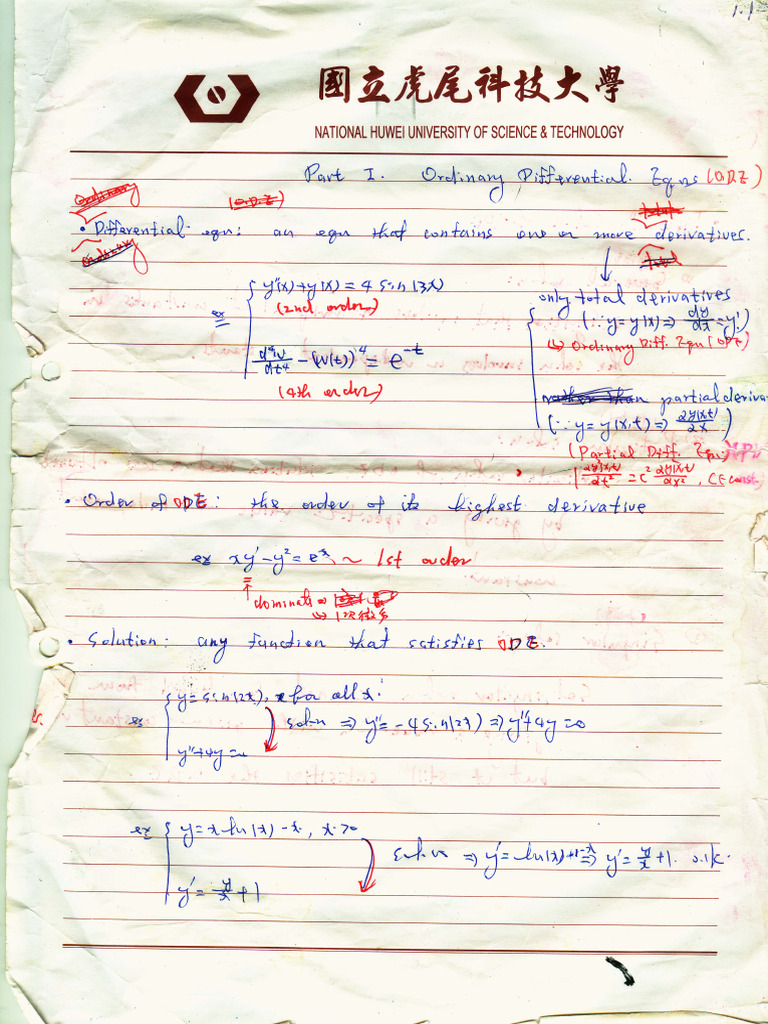 1.1
國立虎尾科技大學
NATIONAL HUWEI UNIVERSITY OF SCIENCE & TECHNOLOGY
Part I. Ordinary Differential Eqns (ODE)
Ordinary (ODE) total
• Differential eqn: an eqn that contains one or more derivatives.
ordinary total
ex { y''(x)+y(x) = 4 sin(3x)
(2nd order)
d⁴w/dt⁴ - (w(t))⁴ = e^-t
(4th order)
only total derivatives
(∵ y=y(x) ⇒ dy/dx = y')
↳ Ordinary Diff. Eqn (ODE)
rather than partial deriva
(∵ y=y(x,t) ⇒ ∂y(x,t)/∂x)
(Partial Diff. Eqn;
∂²y(x,t)/∂t² = C² ∂²y(x,t)/∂x², C∈const.)
• Order of ODE: the order of its highest derivative
ex xy' - y² = e^x, ~ 1st order
↑ dominate ⇒
• Solution: any function that satisfies ODE.
ex { y = sin(2x), for all x.
soln ⇒ y'' = -4 sin(2x) ⇒ y''+4y=0
y''+4y=0
ex { y = x ln(x) - x, x>0
soln ⇒ y' = ln(x)+1-x/x ⇒ y' = y/x + 1. o.k.
y' = y/x + 1